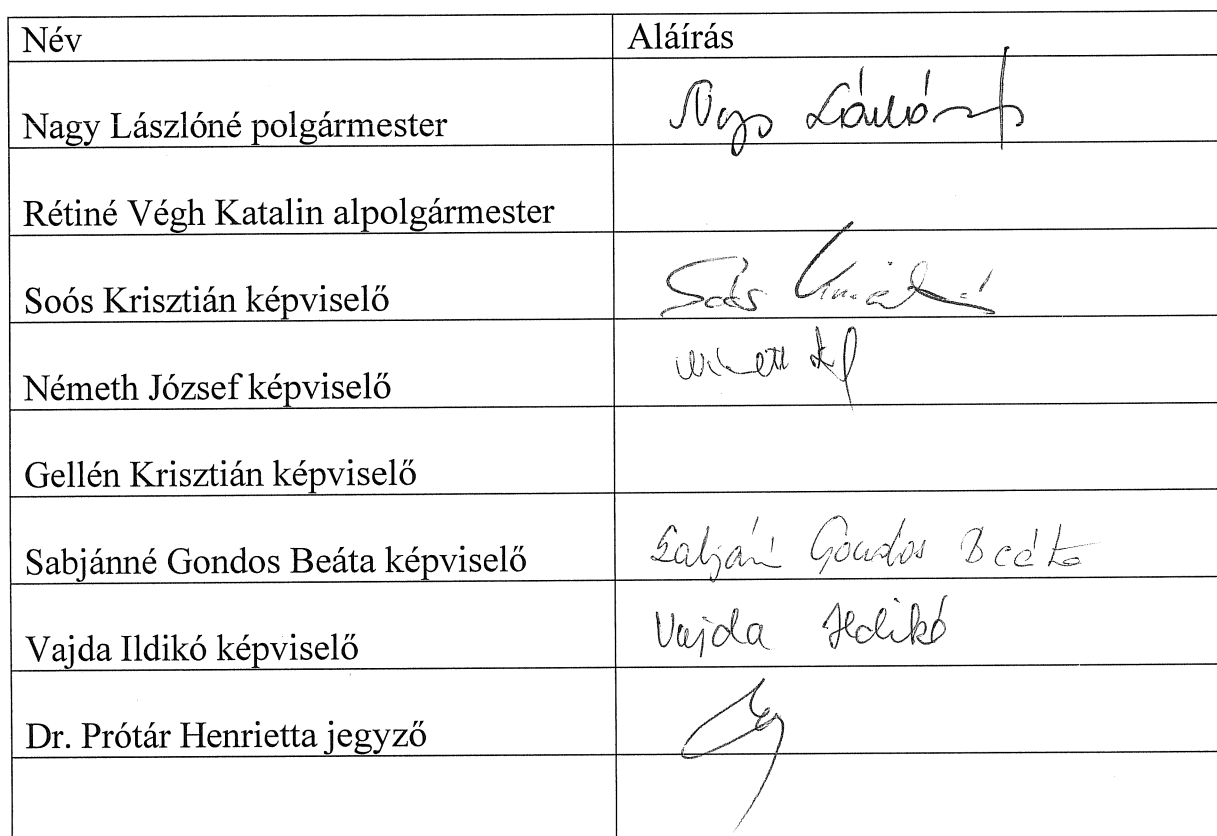 Név Aláírás
Nagy Lászlóné polgármester Nagy Lászlóné
Rétiné Végh Katalin alpolgármester
Soós Krisztián képviselő Soós
Németh József képviselő
Gellén Krisztián képviselő
Sabjánné Gondos Beáta képviselő Sabjánné Gondos Beáta
Vajda Ildikó képviselő Vajda Ildikó
Dr. Prótár Henrietta jegyző